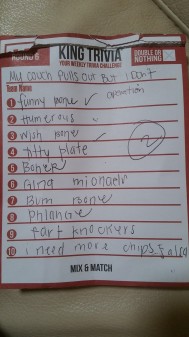 ROUND 6
KING TRIVIA
YOUR WEEKLY TRIVIA CHALLENGE
DOUBLE OR NOTHING
My couch pulls out but I don't
Team Name
operation
1 funny bone
2 Humerous
3 Wish bone
4 titty plate
5 Boner
6 Gina
7 Bum Bone
8 Phlange
9 fart knockers
10 I need more chips & salsa
2
MIX & MATCH